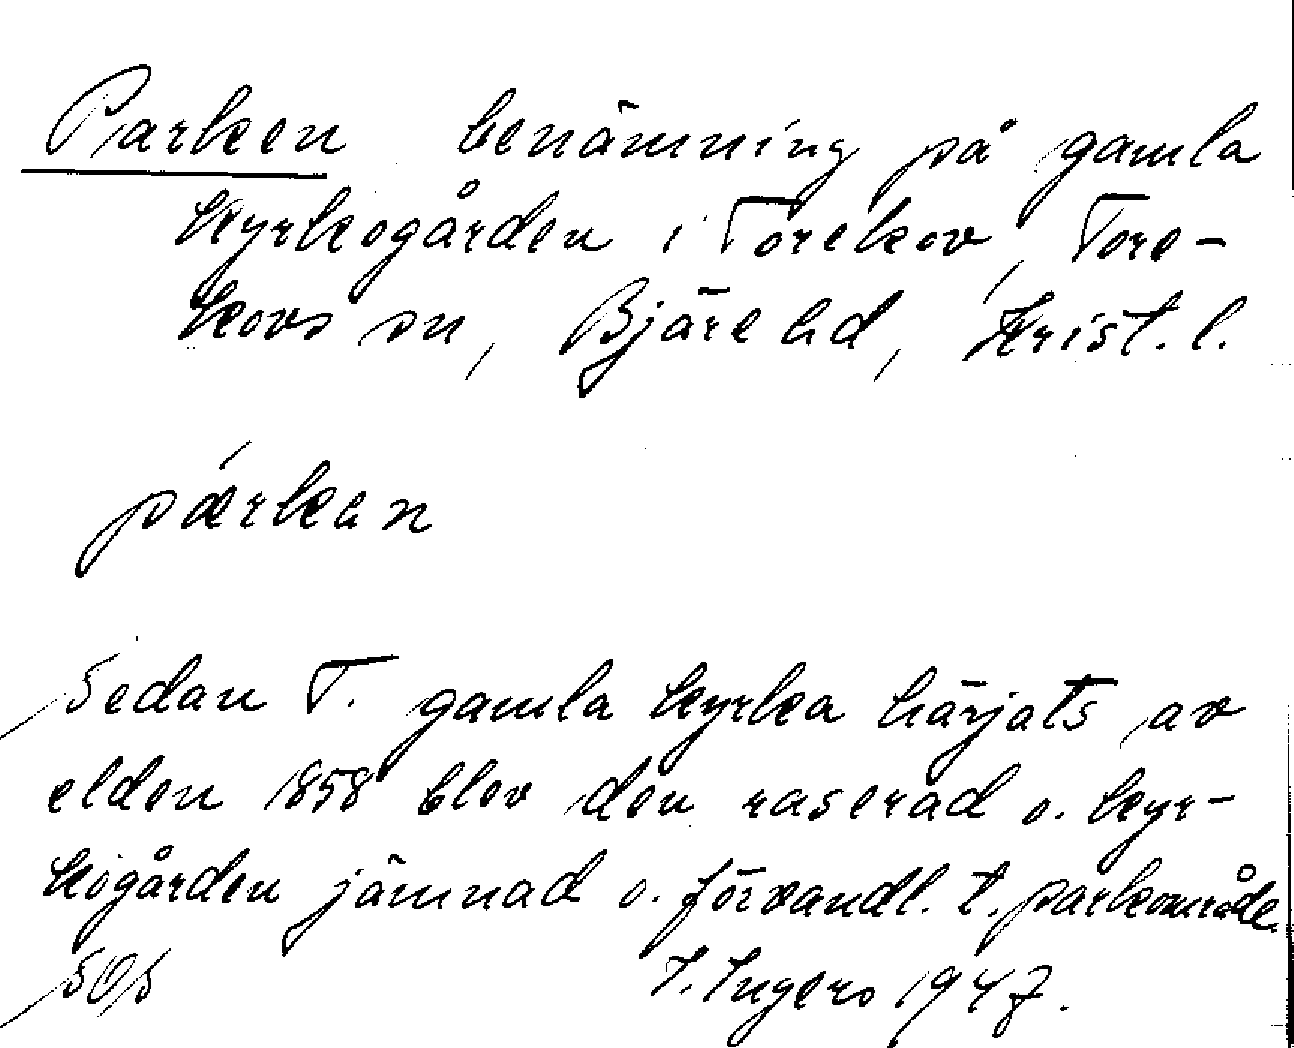 Parken benämning på gamla
kyrkogården i Torekov, Tore-
kovs sn, Bjäre hd, Krist. l.
párkan
Sedan T. gamla kyrka härjats av
elden 1858 blev den raserad o. kyr-
kogården jämnad o. förvandl. t. parkområde.
SOS I. Ingers 1947.